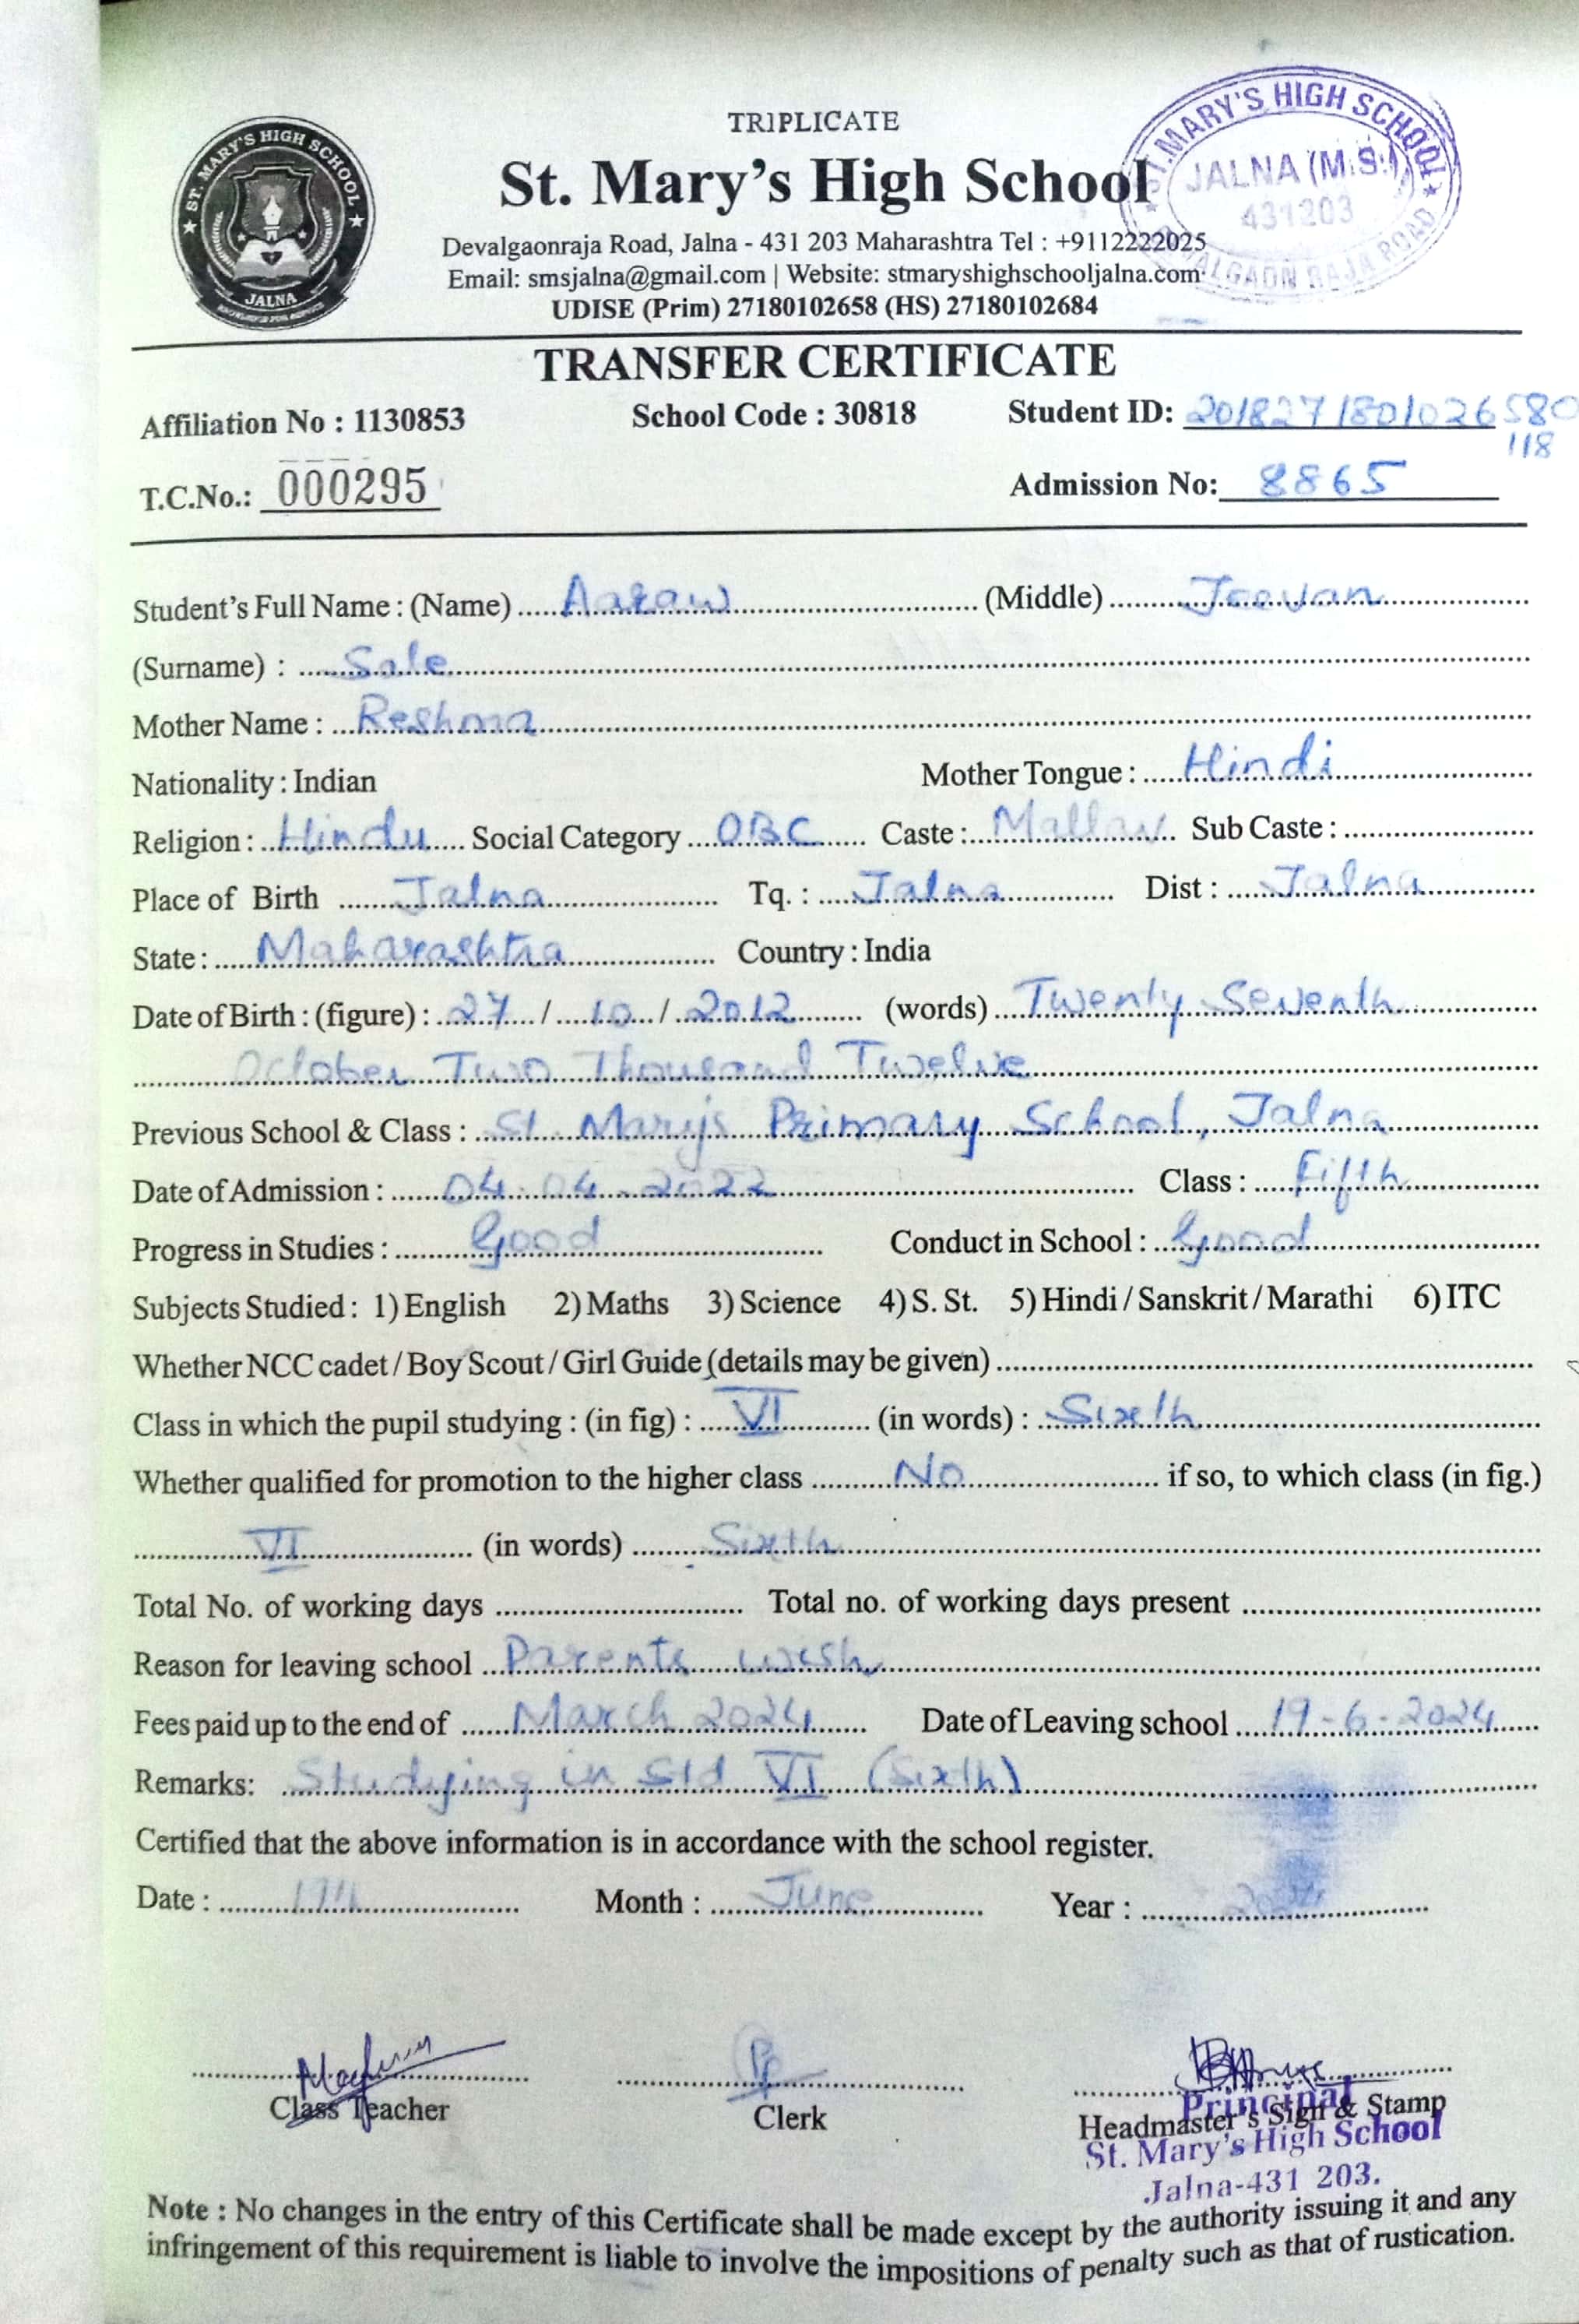 TRIPLICATE
St. Mary's High School
Devalgaonraja Road, Jalna - 431 203 Maharashtra Tel : +9112222025
Email: smsjalna@gmail.com | Website: stmaryshighschooljalna.com
UDISE (Prim) 27180102658 (HS) 27180102684
ST. MARY'S HIGH SCHOOL
JALNA
ST. MARY'S HIGH SCHOOL
JALNA (M.S.)
431203
RAJA ROAD
TRANSFER CERTIFICATE
Affiliation No : 1130853 School Code : 30818 Student ID: 2018271801026580
118
T.C.No.: 000295 Admission No: 8865
Student's Full Name : (Name) Aaraw (Middle) Jeevan
(Surname) : Sale
Mother Name : Reshma
Nationality : Indian Mother Tongue : Hindi
Religion : Hindu Social Category OBC Caste : Sub Caste :
Place of Birth Jalna Tq. : Jalna Dist : Jalna
State : Maharashtra Country : India
Date of Birth : (figure) : 27 / 10 / 2012 (words) Twenty Seventh
October Two Thousand Twelve
Previous School & Class : St. Mary's Primary School, Jalna
Date of Admission : 04-04-2022 Class : Fifth
Progress in Studies : Good Conduct in School : Good
Subjects Studied : 1) English 2) Maths 3) Science 4) S. St. 5) Hindi / Sanskrit / Marathi 6) ITC
Whether NCC cadet / Boy Scout / Girl Guide (details may be given)
Class in which the pupil studying : (in fig) : VI (in words) : Sixth
Whether qualified for promotion to the higher class No if so, to which class (in fig.)
VI (in words) Sixth
Total No. of working days Total no. of working days present
Reason for leaving school Parents wish
Fees paid up to the end of March 2024 Date of Leaving school 19-6-2024
Remarks: Studying in Std VI (Sixth)
Certified that the above information is in accordance with the school register.
Date : Month : June Year : 2024
Class Teacher Clerk Headmaster's Sign & Stamp
Principal
St. Mary's High School
Jalna-431 203.
Note : No changes in the entry of this Certificate shall be made except by the authority issuing it and any
infringement of this requirement is liable to involve the impositions of penalty such as that of rustication.